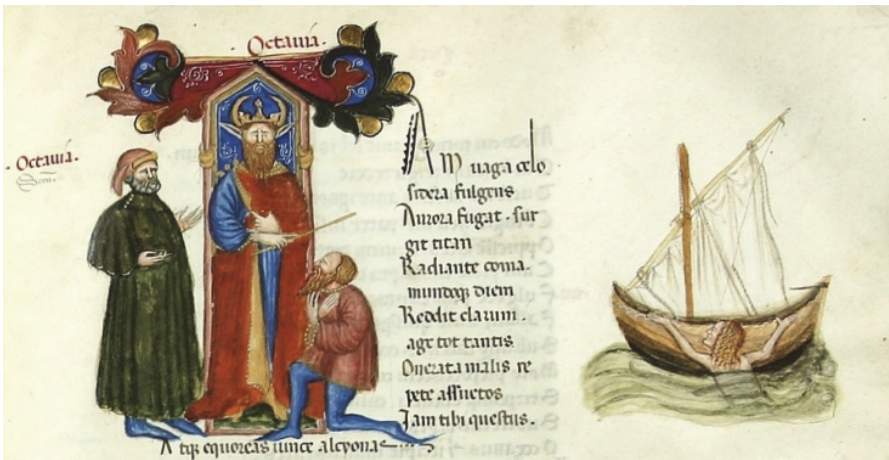 Octauia.
Octauia.
m uaga celo
sidera fulgens
Aurora fugat . sur
git titan
Radiante coma .
mundoqꝫ diem
Reddit clarum .
age tot tantis
Onerata malis re
pete assuetos
Jam tibi questus .
Atqꝫ equoreas uince alcyonas